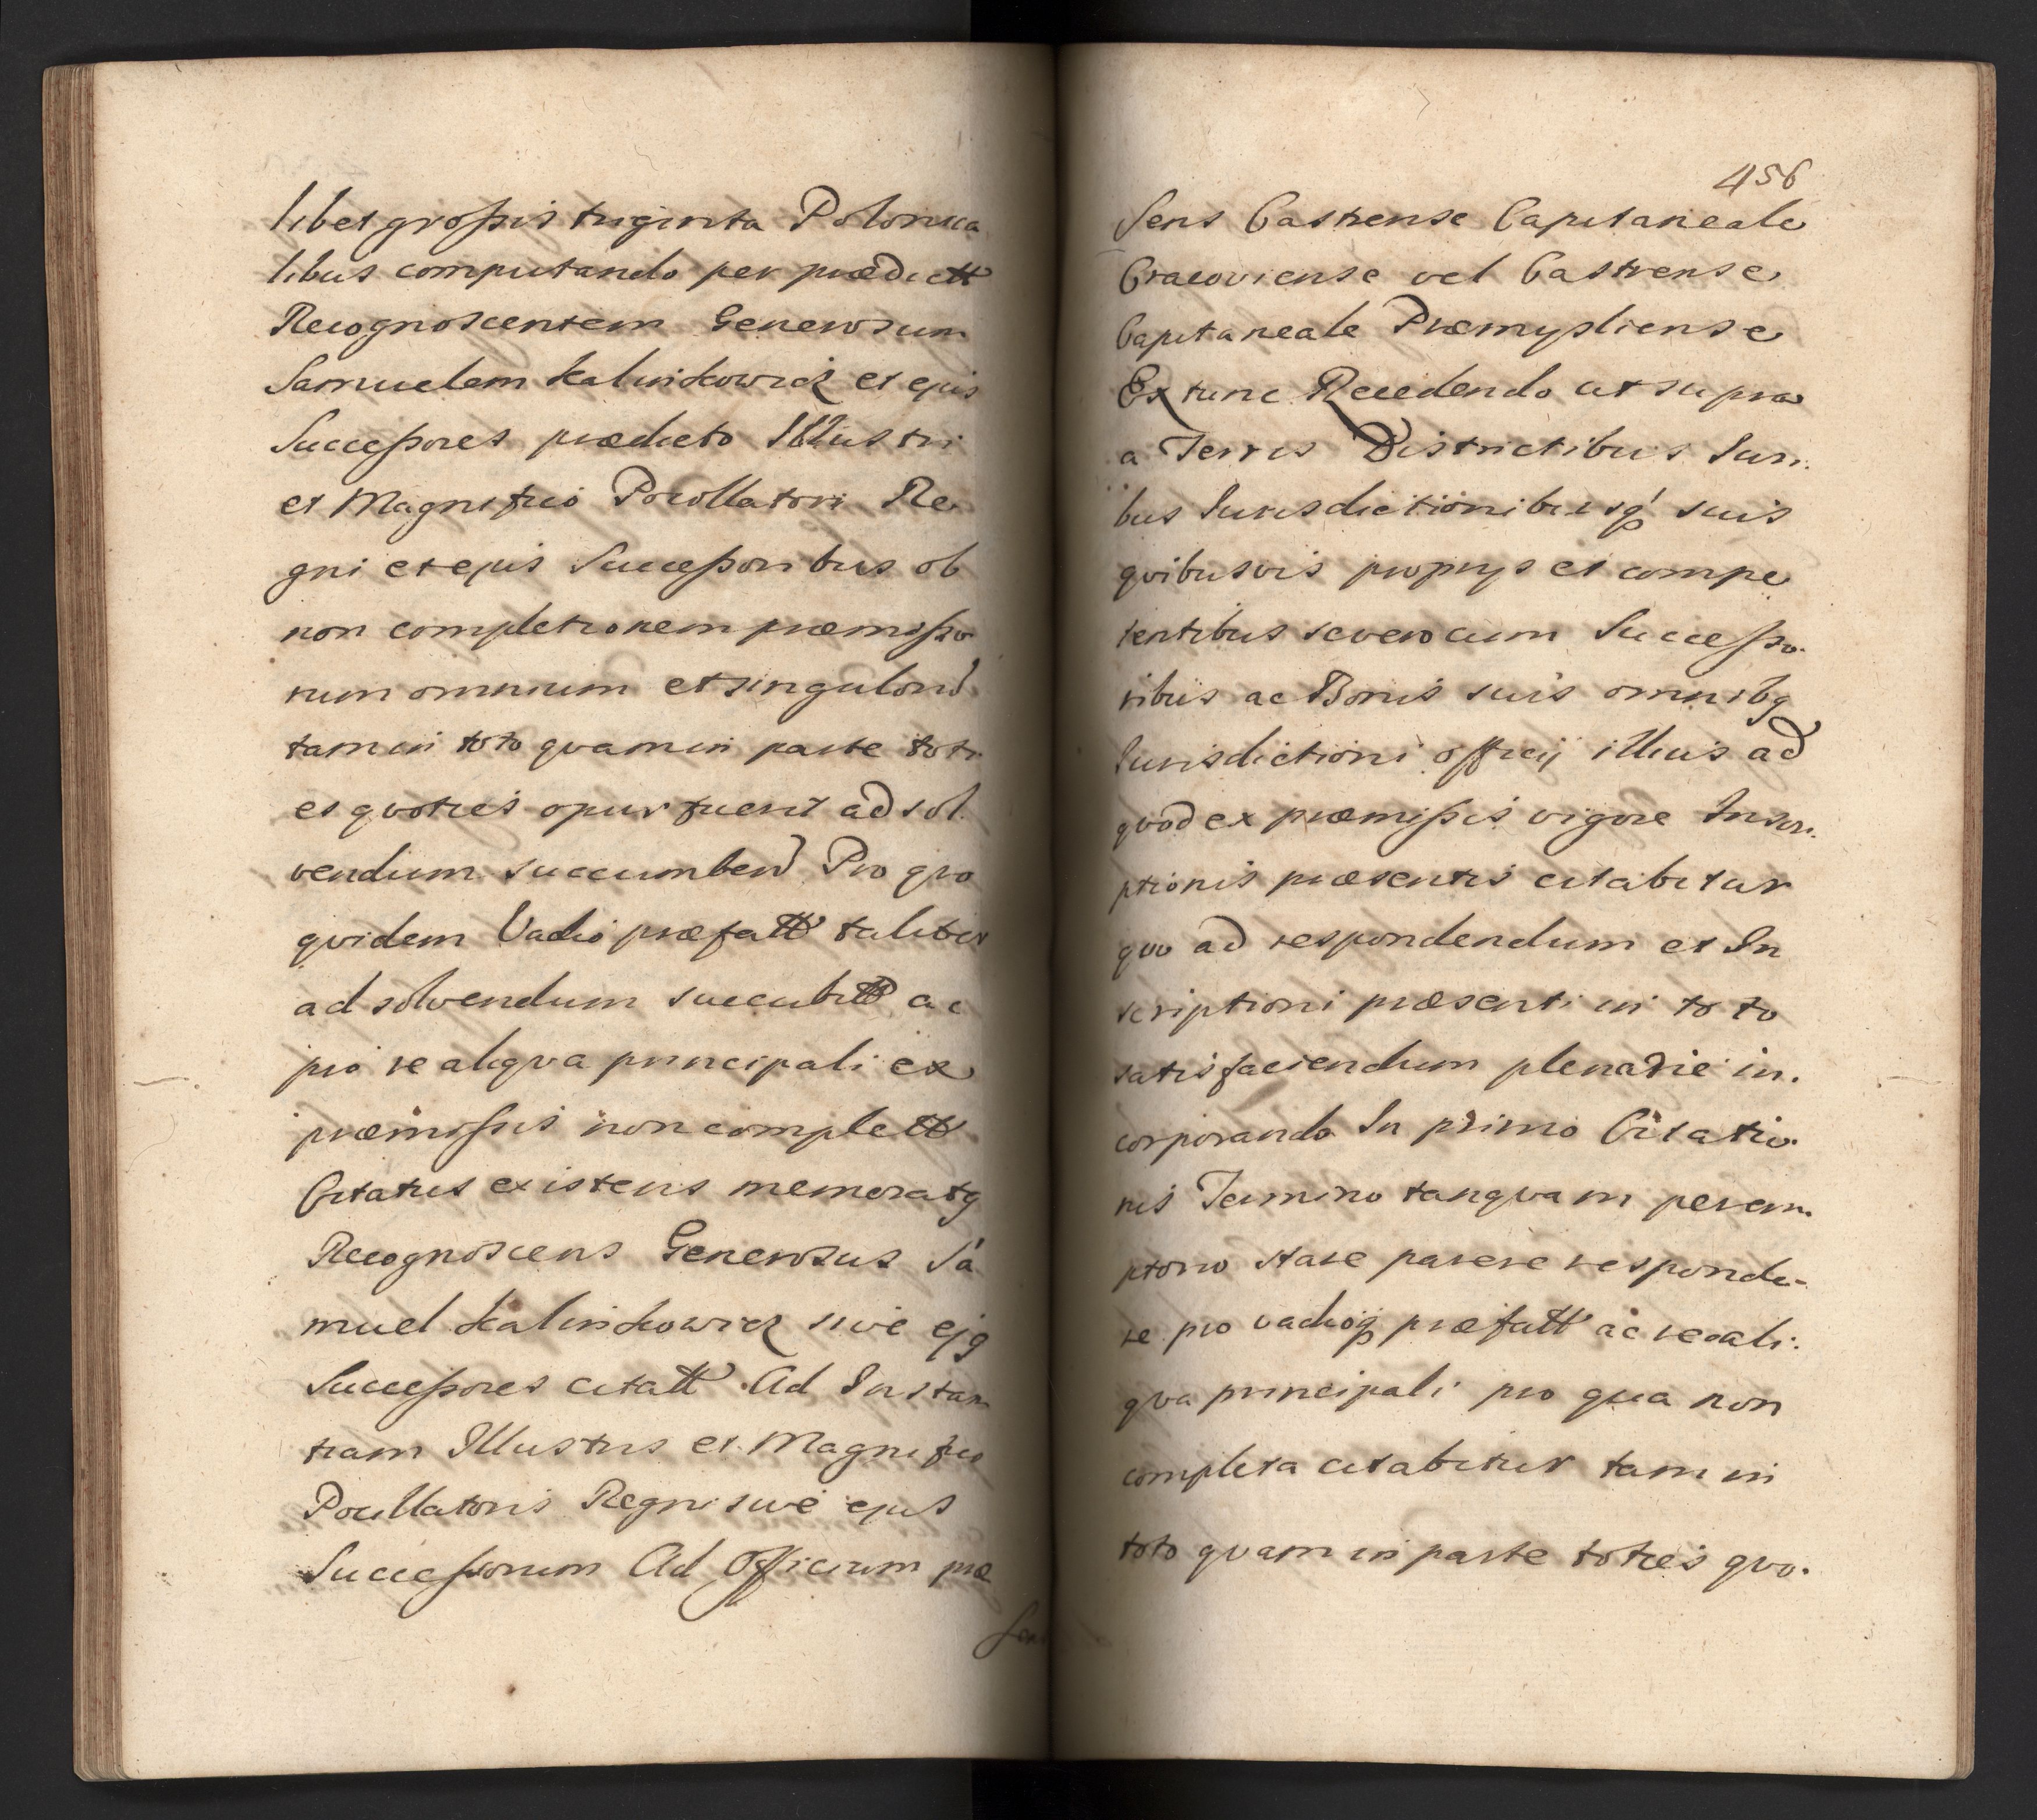 libet grossis triginta Polonica
libus computando per prædictt
Recognoscentem Generosum
Samuelem Kalinkowicz et ejus
Successores prædicto Illustri
et Magnifico Pocollatori Re
gni et ejus Successoribus ob
non completionem præmisso
rum omnium et singulord
tam in toto qvam in parte toti
es qvoties opus fuerit ad sol
vendum succumbend Pro qvo
qvidem Vadio præfatt taliter
ad solvendum succubitt ac
pro re aliqva principali ex
præmissis non complett
Citatus existens memoratq
Recognoscens Generosus Sa
muel Kalinkowicz sive ejq
Successores citatt Ad Instan
tiam Illustris et Magnifici
Pocillatoris Regni sive ejus
Successorum Ad Officium præ
sen
456
sens Castrense Capitaneale
Cracoviense vel Castrense
Capitaneale Præmysliense
Ex tunc Recedendo ut supra
a Terris Districtibus Juri.
bus Jurisdictionibusq suis
qvibusvis proprys et compe
tentibus se vero cum Successo.
ribus ac Bonis suis omnibq
Jurisdictioni officij illius ad
qvod ex præmissis vigore Inscri.
ptionis præsentis citabitur
qvo ad respondendum et In
scriptioni præsenti in toto
satisfaciendum plenarie in.
corporando In primo Citatio.
nis Termino tanqvam perem.
ptorio stare parere responde-
re pro vadioq præfatt ac re ali.
qva principali pro qua non
completa citabitur tam in
toto qvam in parte toties qvo.